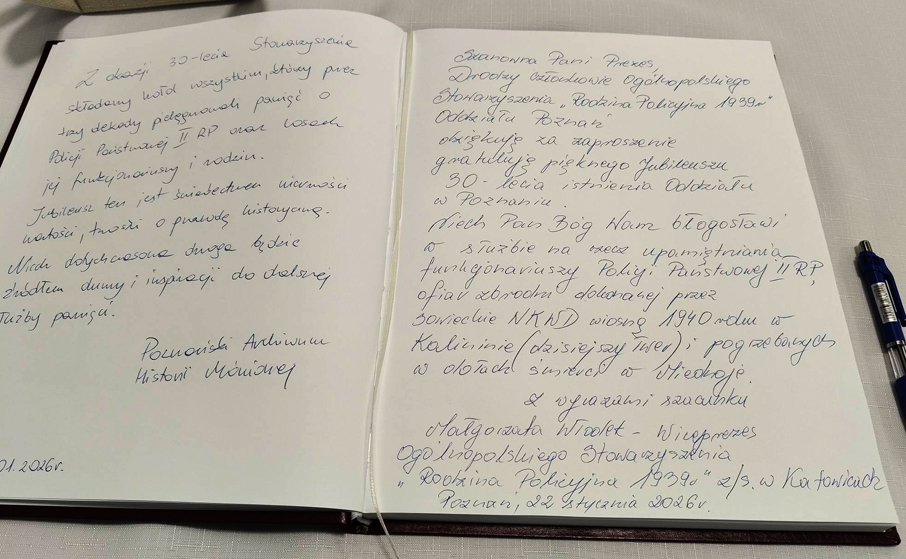 Z okazji 30-lecia Stowarzyszenia
składamy hołd wszystkim, którzy przez
trzy dekady pielęgnowali pamięć o
Policji Państwowej II RP oraz losach
jej funkcjonariuszy i rodzin.
Jubileusz ten jest świadectwem wierności
wartości, troski o prawdę historyczną.
Niech dotychczasowa droga będzie
źródłem dumy i inspiracji do dalszej
służby pamięci.
Poznańskie Archiwum
Historii Mówionej
01.2026r.
Szanowna Pani Prezes,
Drodzy Członkowie Ogólnopolskiego
Stowarzyszenia „Rodzina Policyjna 1939r"
Oddziału Poznań
dziękuję za zaproszenie
gratuluję pięknego Jubileuszu
30-lecia istnienia Oddziału
w Poznaniu.
Niech Pan Bóg Wam błogosławi
w służbie na rzecz upamiętniania
funkcjonariuszy Policji Państwowej II RP,
ofiar zbrodni dokonanej przez
sowieckie NKWD wiosną 1940 roku w
Kalininie (dzisiejszy Twer) i pogrzebanych
w dołach śmierci w Miednoje.
Z wyrazami szacunku
Małgorzata - Wiceprezes
Ogólnopolskiego Stowarzyszenia
„Rodzina Policyjna 1939r" z/s. w Katowicach
Poznań, 22 stycznia 2026r.